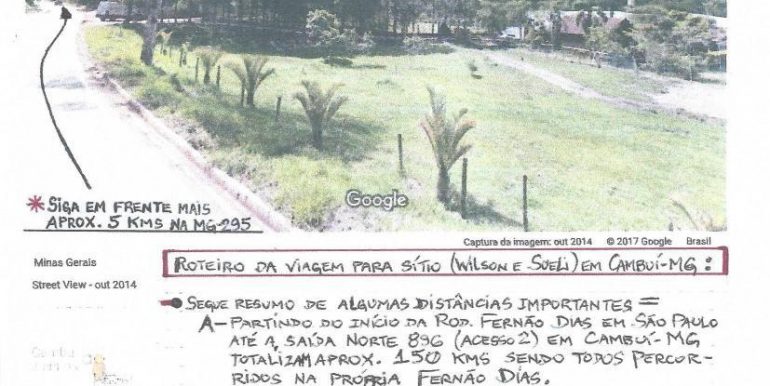 Google
* SIGA EM FRENTE MAIS
APROX. 5 KMS NA MG-295
Captura da imagem: out 2014 © 2017 Google Brasil
Minas Gerais
Street View - out 2014
ROTEIRO DA VIAGEM PARA SÍTIO (WILSON E SUELI) EM CAMBUÍ-MG:
SEGUE RESUMO DE ALGUMAS DISTÂNCIAS IMPORTANTES =
A- PARTINDO DO INÍCIO DA ROD. FERNÃO DIAS EM SÃO PAULO
ATÉ A SAÍDA NORTE 896 (ACESSO 2) EM CAMBUÍ-MG
TOTALIZAM APROX. 150 KMS SENDO TODOS PERCOR-
RIDOS NA PRÓPRIA FERNÃO DIAS.